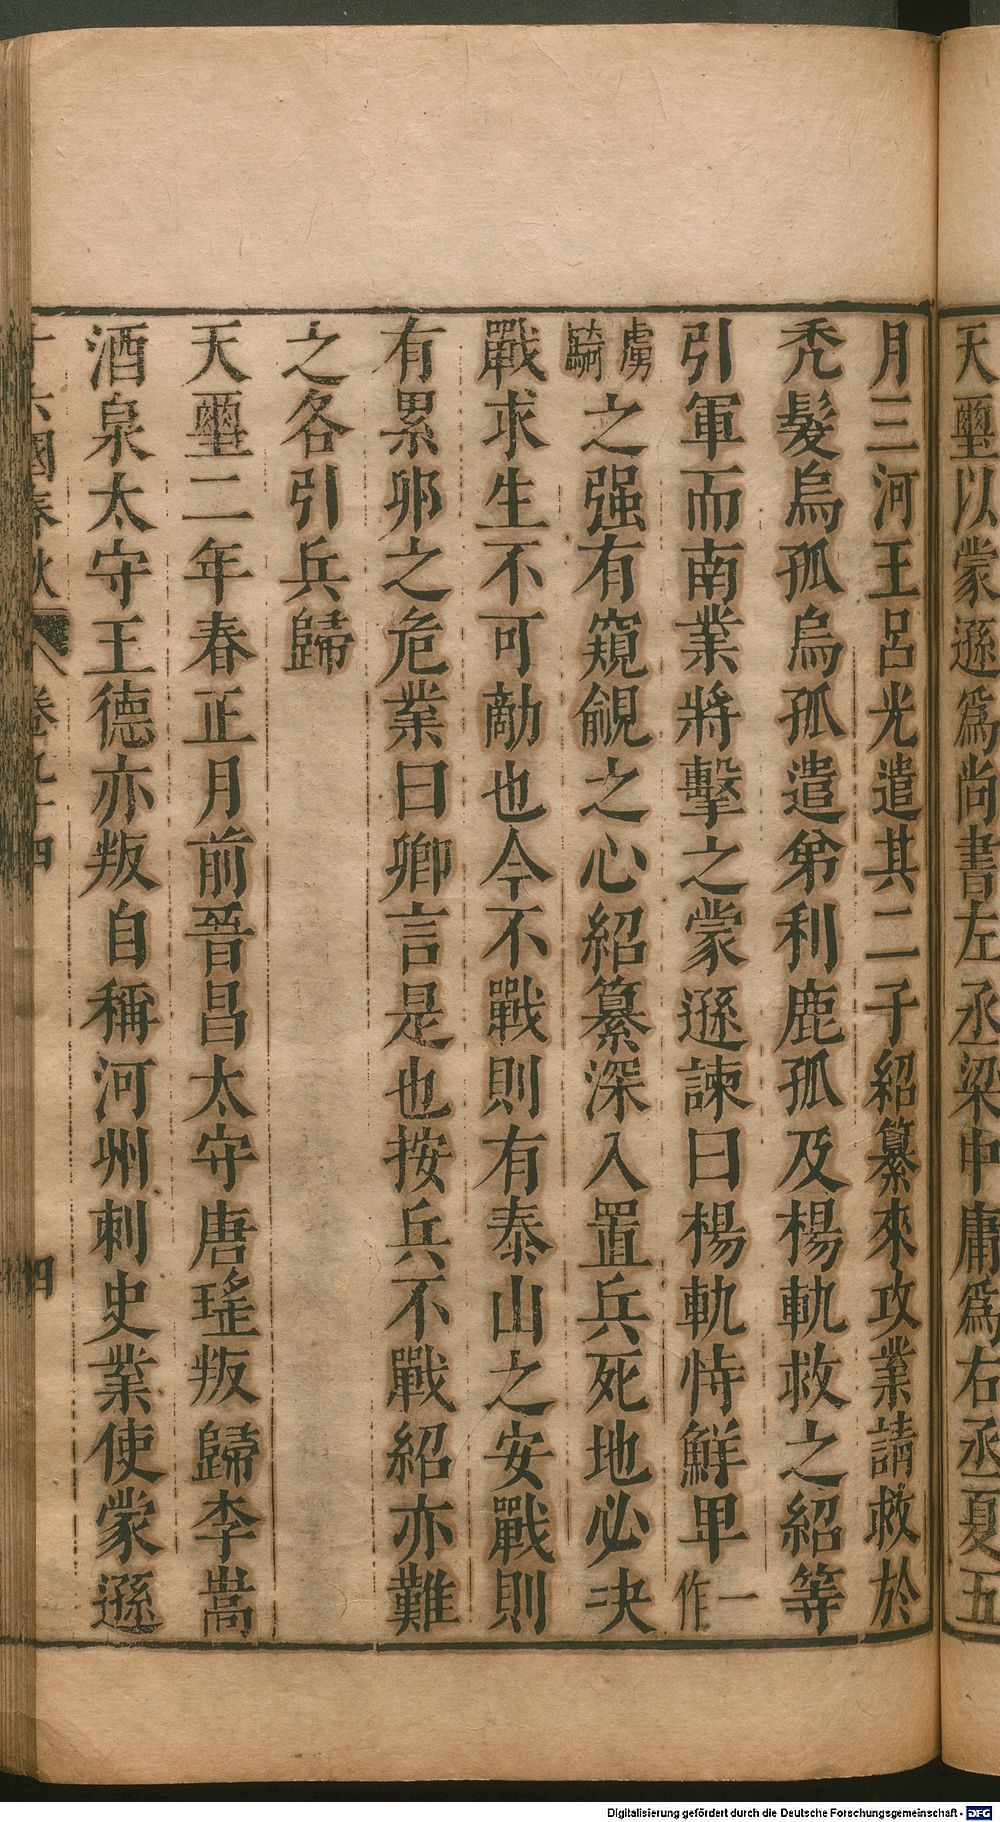 天璽以蒙遜爲尚書左丞梁中庸爲右丞夏五
月三河王呂光遣其二子紹纂來攻業請救於
禿髮烏孤烏孤遣弟利鹿孤及楊軌救之紹等
引軍而南業將擊之蒙遜諫曰楊軌恃鮮卑一作
虜騎之强有窺覦之心紹纂深入置兵死地必决
戰求生不可敵也今不戰則有泰山之安戰則
有累卵之危業曰卿言是也按兵不戰紹亦難
之各引兵歸
天璽二年春正月前晉昌太守唐瑤叛歸李暠
酒泉太守王德亦叛自稱河州刺史業使蒙遜
十六國春秋 卷九十四 四
Digitalisierung gefördert durch die Deutsche Forschungsgemeinschaft - DFG